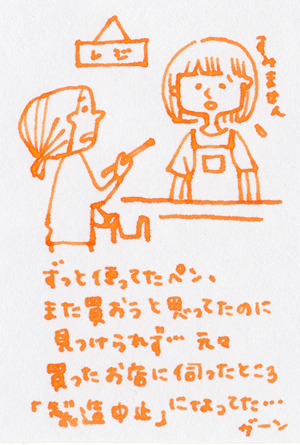 レジ
すみません
ずっと使ってたペン、
また買おうと思ってたのに
見つけられず… 元々
買ったお店に伺ったところ
「製造中止」になってた…
ガーン